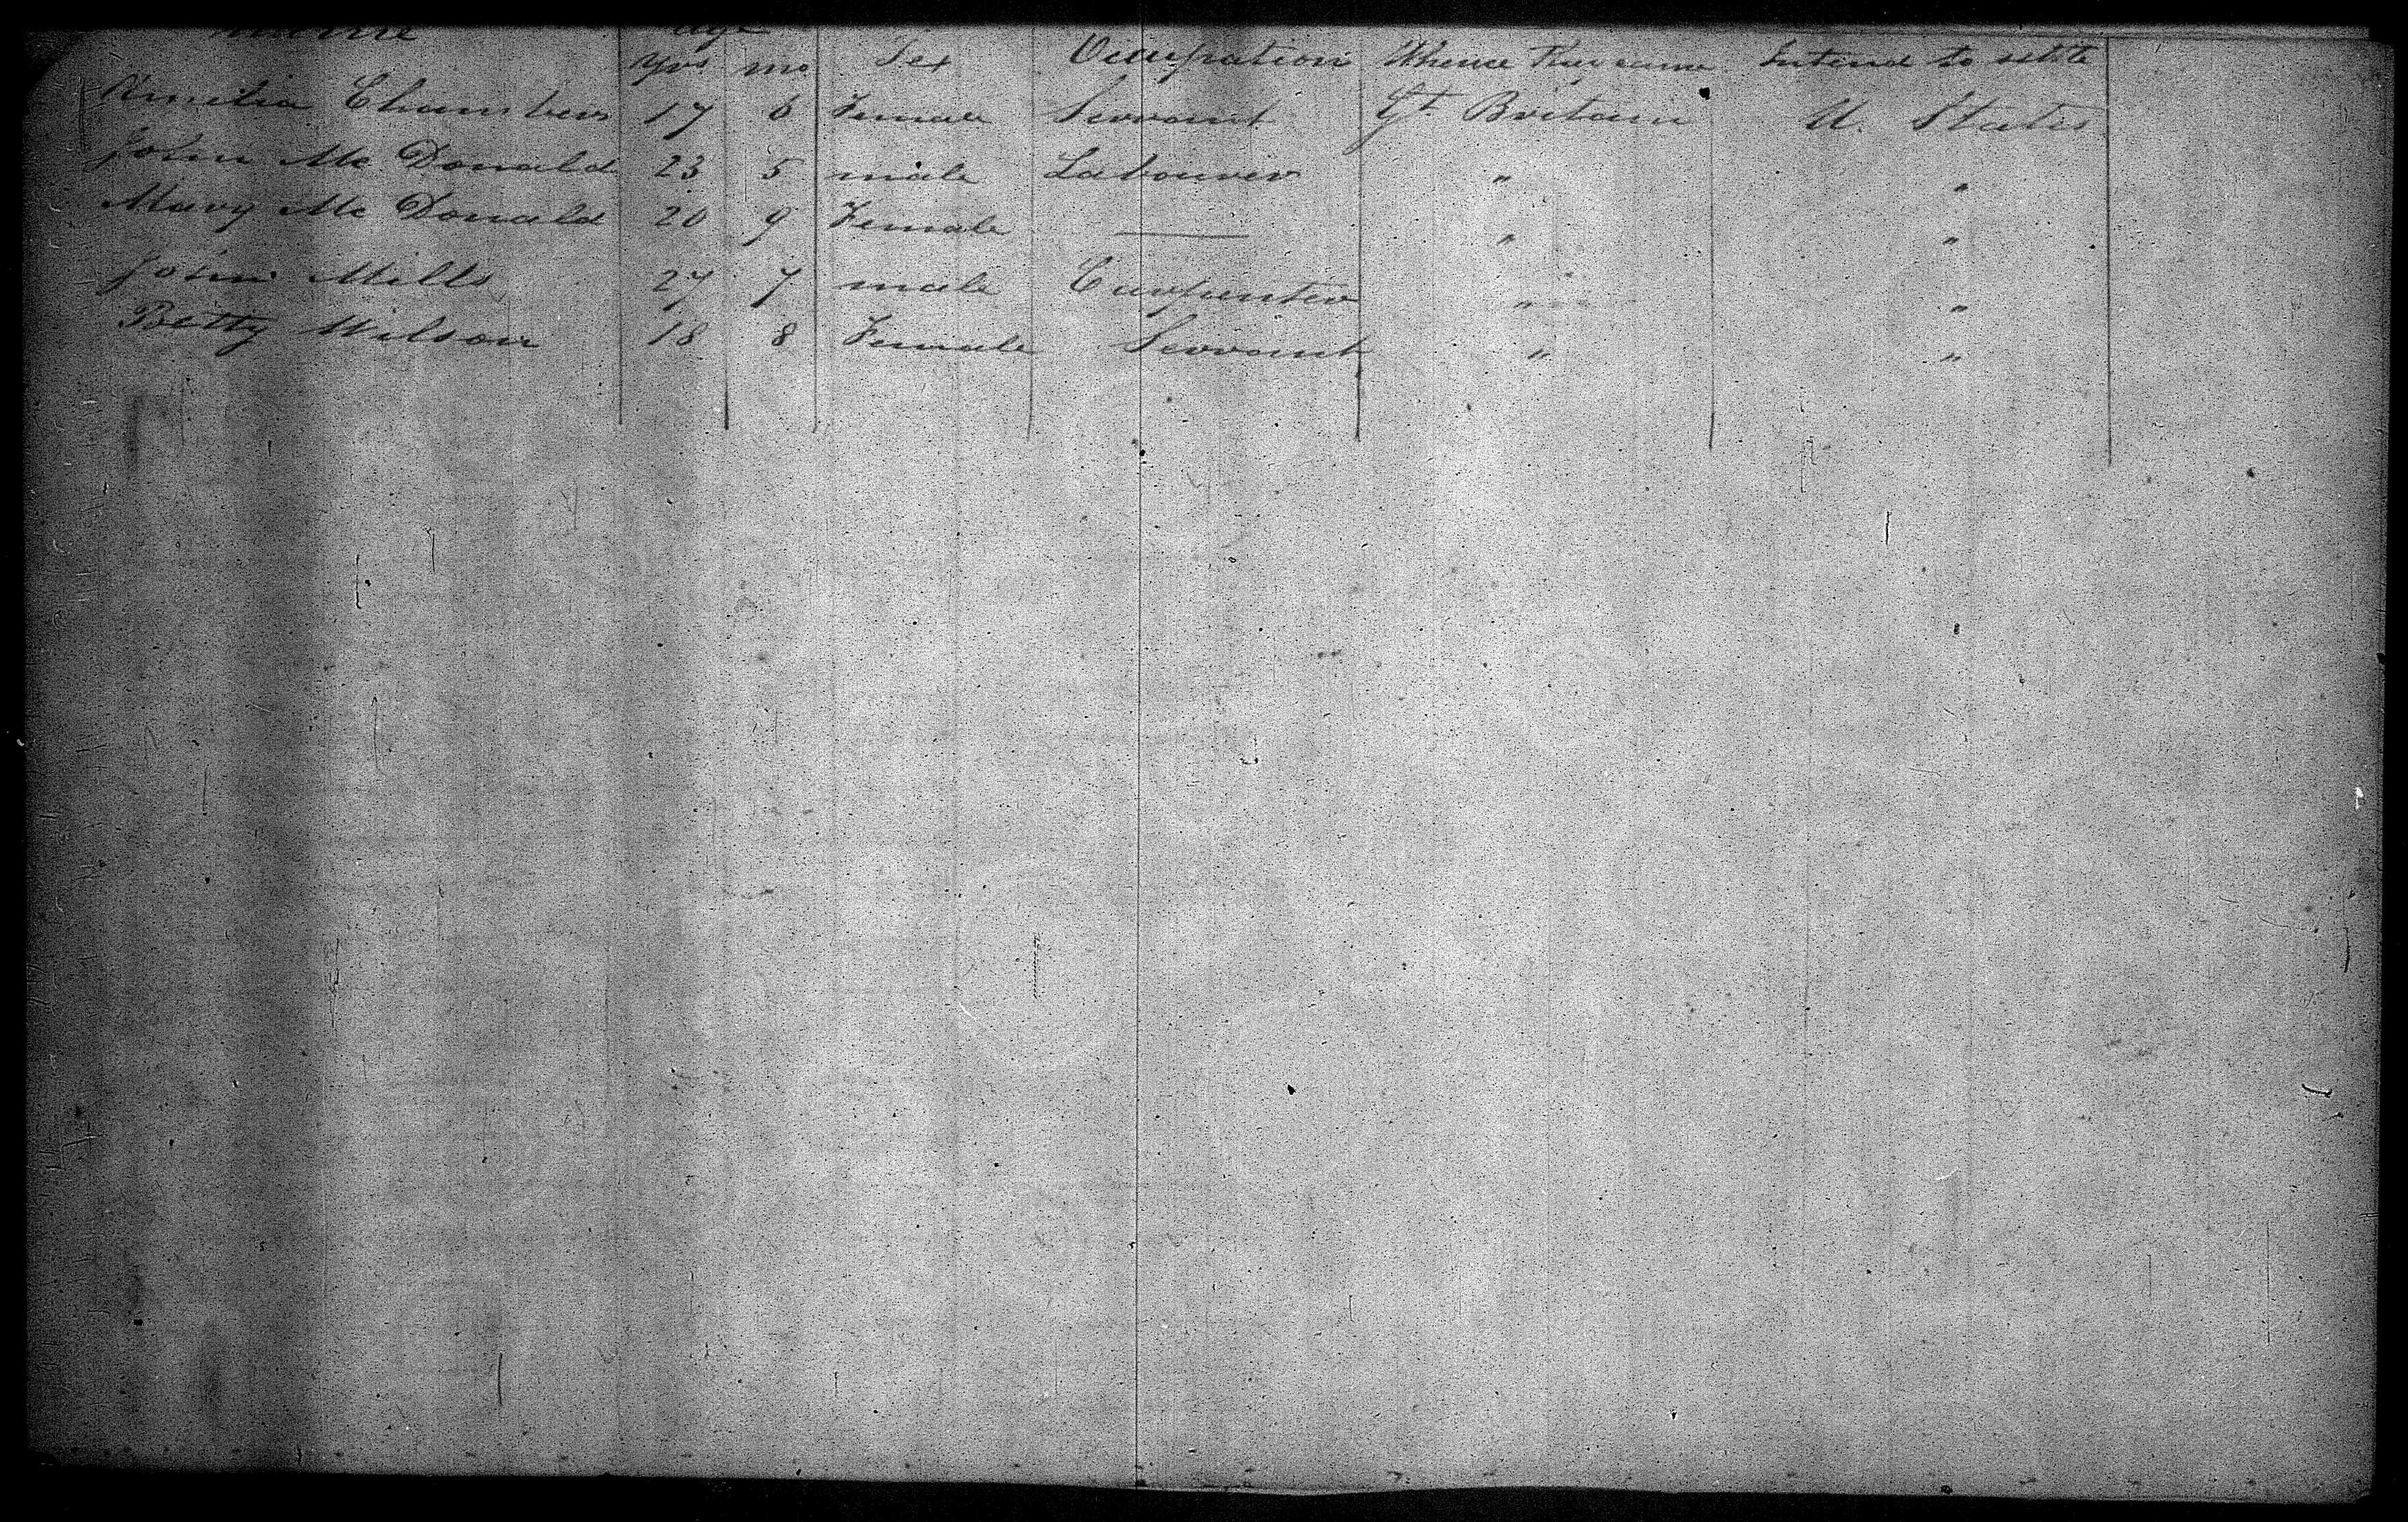 Name Age
Yrs mo Sex Occupation Whence they came Intend to settle
Amelia Chambers 17 6 Female Servant Gt Britain U. States
John Mc Donald 23 5 male Labourer " "
Mary Mc Donald 20 9 Female — " "
John Mills 27 7 male Carpenter " "
Betty Wilson 18 8 Female Servant " "